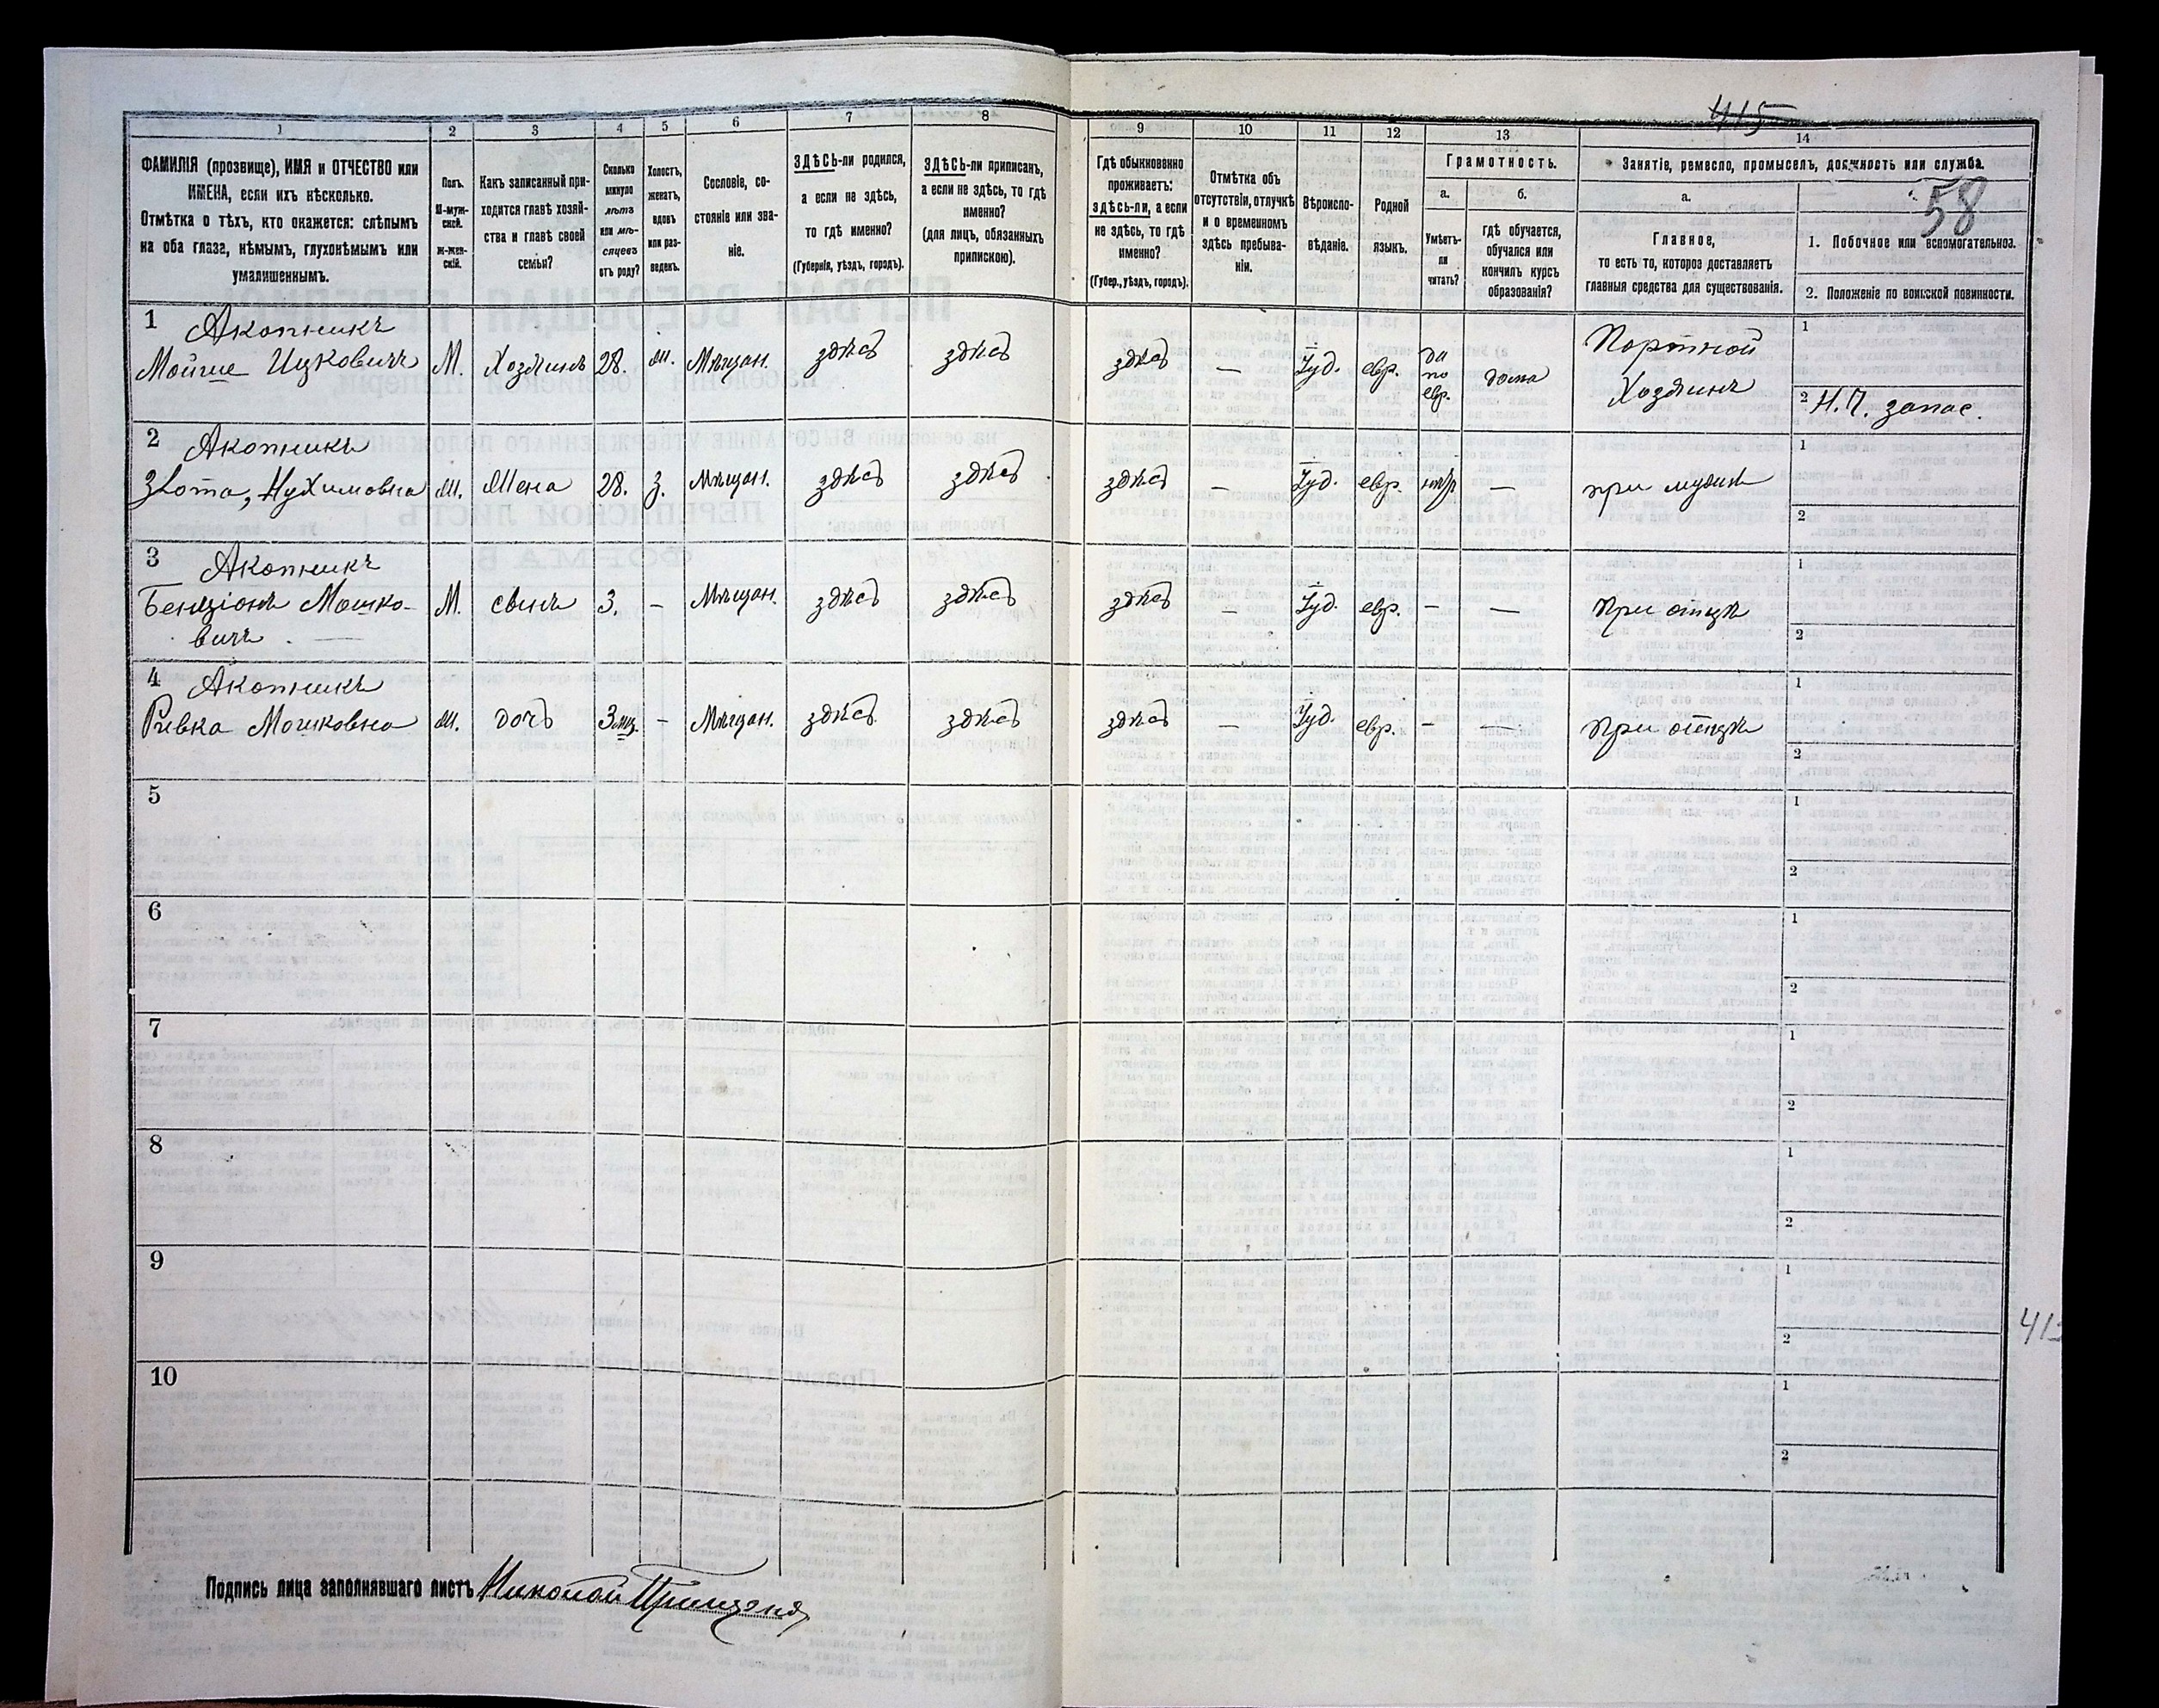 415
58
1
2
3
4
5
6
7
8
9
10
11
12
13
14
ФАМИЛІЯ (прозвище), ИМЯ и ОТЧЕСТВО или
ИМЕНА, если ихъ нѣсколько.
Отмѣтка о тѣхъ, кто окажется: слѣпымъ
на оба глаза, нѣмымъ, глухонѣмымъ или
умалишеннымъ.
Полъ.
М-муж-
ской.
Ж-жен-
скій.
Какъ записанный при-
ходится главѣ хозяй-
ства и главѣ своей
семьи?
Сколько
минуло
лѣтъ
или мѣ-
сяцевъ
отъ роду?
Холостъ,
женатъ,
вдовъ
или раз-
веденъ.
Сословіе, со-
стояніе или зва-
ніе.
ЗДѢСЬ-ли родился,
а если не здѣсь,
то гдѣ именно?
(Губернія, уѣздъ, городъ).
ЗДѢСЬ-ли приписанъ,
а если не здѣсь, то гдѣ
именно?
(для лицъ, обязанныхъ
припискою).
Гдѣ обыкновенно
проживаетъ:
здѣсь-ли, а если
не здѣсь, то гдѣ
именно?
(Губер., уѣздъ, городъ).
Отмѣтка объ
отсутствіи, отлучкѣ
и о временномъ
здѣсь пребыва-
ніи.
Вѣроиспо-
вѣданіе.
Родной
языкъ.
Грамотность.
а.
Умѣетъ-
ли
читать?
б.
гдѣ обучается,
обучался или
кончилъ курсъ
образованія?
Занятіе, ремесло, промыселъ, должность или служба.
а.
Главное,
то есть то, которое доставляетъ
главныя средства для существованія.
1. Побочное или вспомогательное.
2. Положеніе по воинской повинности.
1 Акопникъ
Мойше Ицковичъ М. Хозяинъ 28. ж. Мѣщан. здѣсь здѣсь здѣсь — Іуд. евр. да по евр. дома Портной Хозяинъ 1
2 Н. Ч. запас.
2 Акопникъ
Злота, Нухимовна ж. Жена 28. з. Мѣщан. здѣсь здѣсь здѣсь — Іуд. евр. — при мужѣ 1
2
3 Акопникъ
Бенціонъ Мошко-
вичъ М. сынъ 3. — Мѣщан. здѣсь здѣсь здѣсь — Іуд. евр. — — При отцѣ 1
2
4 Акопникъ
Ривка Мошковна ж. дочь 3 мц. — Мѣщан. здѣсь здѣсь здѣсь — Іуд. евр. — — При отцѣ 1
2
5 1
2
6 1
2
7 1
2
8 1
2
9 1
2
10 1
2
Подпись лица заполнявшаго листъ Николай